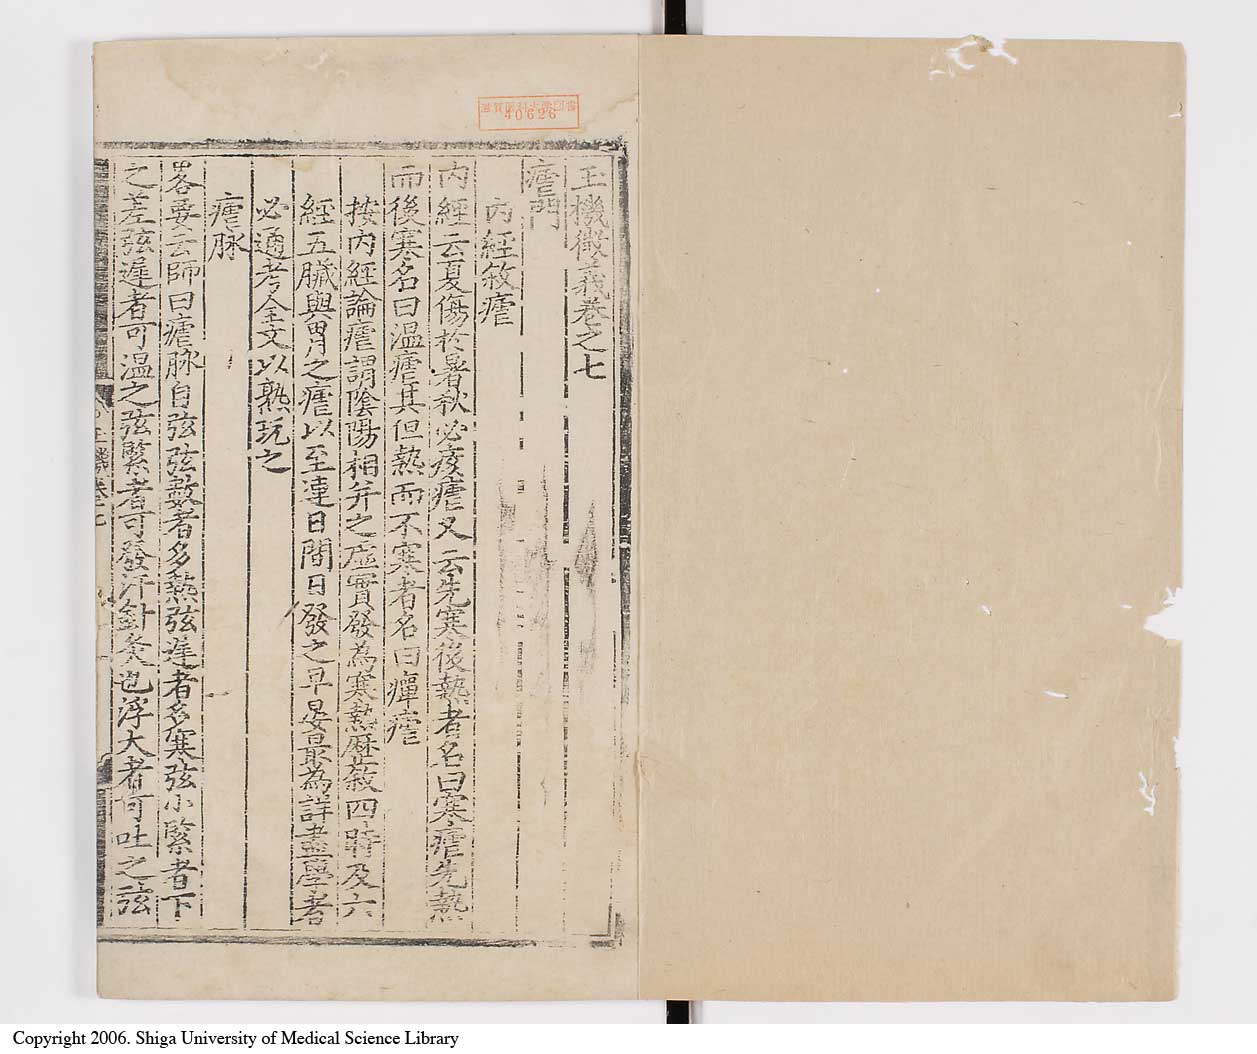 玉機微義卷之七
瘧門
內經敘瘧
內經云夏傷於暑秋必痎瘧又云先寒後熱者名曰寒瘧先熱
而後寒名曰溫瘧其但熱而不寒者名曰癉瘧
按內經論瘧謂陰陽相并之虛實發為寒熱歷敘四時及六
經五臟與胃之瘧以至連日間日發之早晏最為詳盡學者
必通考全文以熟玩之
瘧脉
畧要云師曰瘧脉自弦弦數者多熱弦遲者多寒弦小緊者下
之差弦遲者可溫之弦緊者可發汗針灸也浮大者可吐之弦
玉機卷七
滋賀医科大学図書
40626
Copyright 2006. Shiga University of Medical Science Library